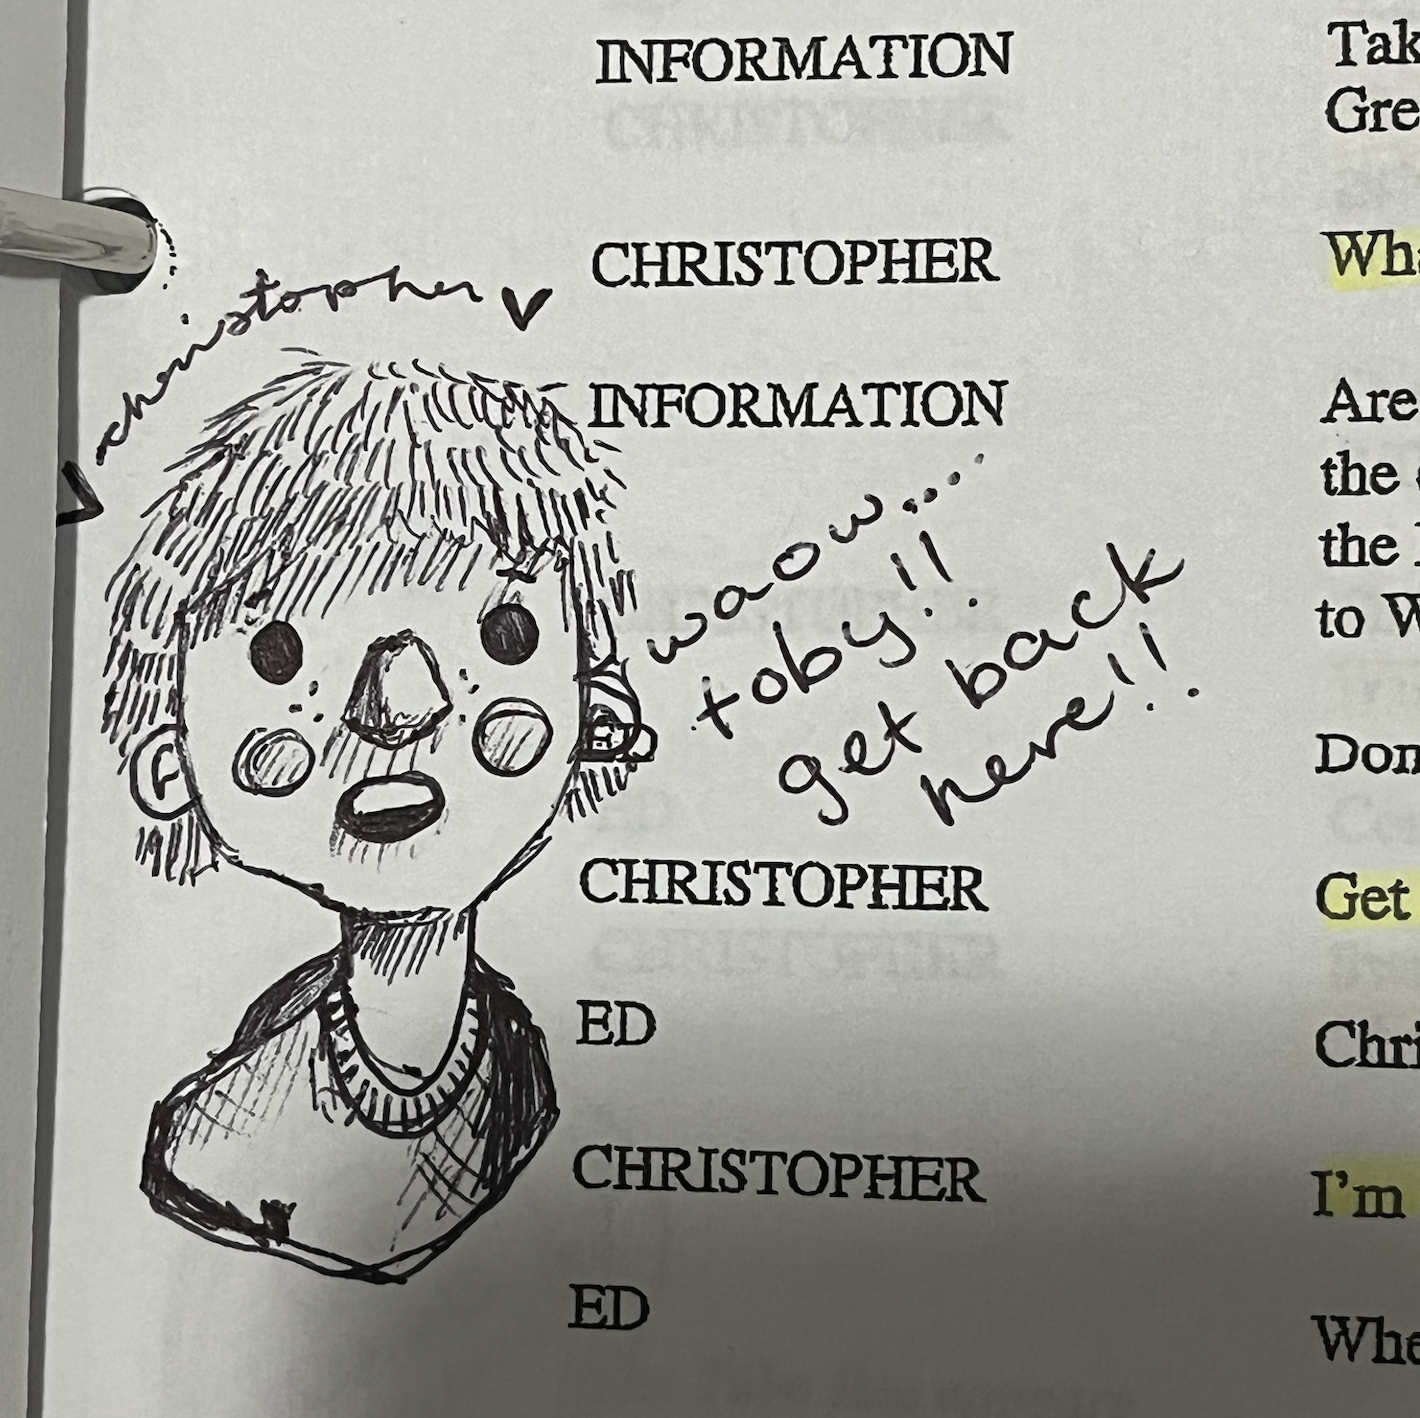 INFORMATION Tak
Gre
CHRISTOPHER Wha
christopher
INFORMATION Are
the
the
to W
waow...
toby!!
get back
here!!
Don
CHRISTOPHER Get
ED Chri
CHRISTOPHER I'm
ED Whe